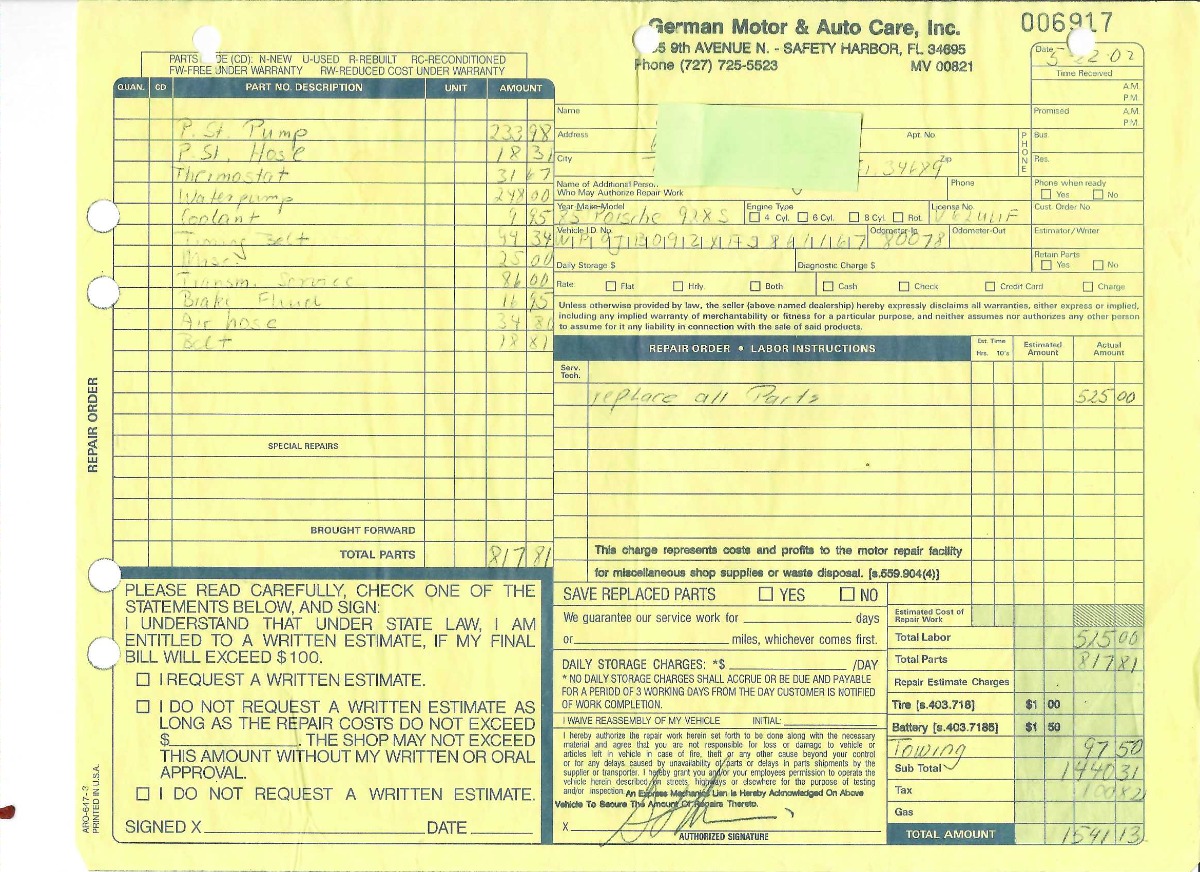 German Motor & Auto Care, Inc.
006917
5 9th AVENUE N. - SAFETY HARBOR, FL 34695
Phone (727) 725-5523 MV 00821
Date 02
Time Received
A.M.
P.M.
PARTS CODE (CD): N-NEW U-USED R-REBUILT RC-RECONDITIONED
FW-FREE UNDER WARRANTY RW-REDUCED COST UNDER WARRANTY
QUAN. CD PART NO. DESCRIPTION UNIT AMOUNT
P. St. Pump 233 98
P. St. Hose 18 31
Thermostat 31 67
Waterpump 248 00
Coolant 9 95
Timing Belt 94 34
Misc 25 00
Transm. Service 86 00
Brake Fluid 16 95
Air hose 34 80
Belt 18 81
SPECIAL REPAIRS
BROUGHT FORWARD
TOTAL PARTS 817 81
REPAIR ORDER
Name
Promised A.M.
P.M.
Address Apt. No.
PHONE
Bus.
City Fl. 34689 Zip
Res.
Name of Additional Person
Who May Authorize Repair Work
Phone
Phone when ready
Yes No
Year-Make-Model 85 Porsche 928 S
Engine Type
4 Cyl. 6 Cyl. 8 Cyl. Rot.
License No.
Cust. Order No
Vehicle I.D. No.
Odometer-In 80078
Odometer-Out
Estimator/Writer
Daily Storage $ Diagnostic Charge $
Retain Parts
Yes No
Rate: Flat Hrly. Both Cash Check Credit Card Charge
Unless otherwise provided by law, the seller (above named dealership) hereby expressly disclaims all warranties, either express or implied,
including any implied warranty of merchantability or fitness for a particular purpose, and neither assumes nor authorizes any other person
to assume for it any liability in connection with the sale of said products.
REPAIR ORDER • LABOR INSTRUCTIONS
Est. Time
Hrs. 10's
Estimated Amount
Actual Amount
Serv. Tech.
replace all Parts 525 00
This charge represents costs and profits to the motor repair facility
for miscellaneous shop supplies or waste disposal. [s.559.904(4)]
PLEASE READ CAREFULLY, CHECK ONE OF THE
STATEMENTS BELOW, AND SIGN:
I UNDERSTAND THAT UNDER STATE LAW, I AM
ENTITLED TO A WRITTEN ESTIMATE, IF MY FINAL
BILL WILL EXCEED $100.
I REQUEST A WRITTEN ESTIMATE.
I DO NOT REQUEST A WRITTEN ESTIMATE AS
LONG AS THE REPAIR COSTS DO NOT EXCEED
$ THE SHOP MAY NOT EXCEED
THIS AMOUNT WITHOUT MY WRITTEN OR ORAL
APPROVAL.
I DO NOT REQUEST A WRITTEN ESTIMATE.
SIGNED X DATE
ARO-647-3
PRINTED IN U.S.A.
SAVE REPLACED PARTS YES NO
We guarantee our service work for days
or miles, whichever comes first.
DAILY STORAGE CHARGES: *$ /DAY
* NO DAILY STORAGE CHARGES SHALL ACCRUE OR BE DUE AND PAYABLE
FOR A PERIOD OF 3 WORKING DAYS FROM THE DAY CUSTOMER IS NOTIFIED
OF WORK COMPLETION.
I WAIVE REASSEMBLY OF MY VEHICLE INITIAL:
I hereby authorize the repair work herein set forth to be done along with the necessary
material and agree that you are not responsible for loss or damage to vehicle or
articles left in vehicle in case of fire, theft or any other cause beyond your control
or for any delays caused by unavailability of parts or delays in parts shipments by the
supplier or transporter. I hereby grant you and/or your employees permission to operate the
vehicle herein described on streets, highways or elsewhere for the purpose of testing
and/or inspection. An Express Mechanics Lien is Hereby Acknowledged On Above
Vehicle To Secure The Amount Of Repairs Thereto.
X
AUTHORIZED SIGNATURE
Estimated Cost of Repair Work
Total Labor 525 00
Total Parts 817 81
Repair Estimate Charges
Tire [s.403.718] $1 00
Battery [s.403.7185] $1 50
Towing 97 50
Sub Total 1440 31
Tax 100 82
Gas
TOTAL AMOUNT 1541 13